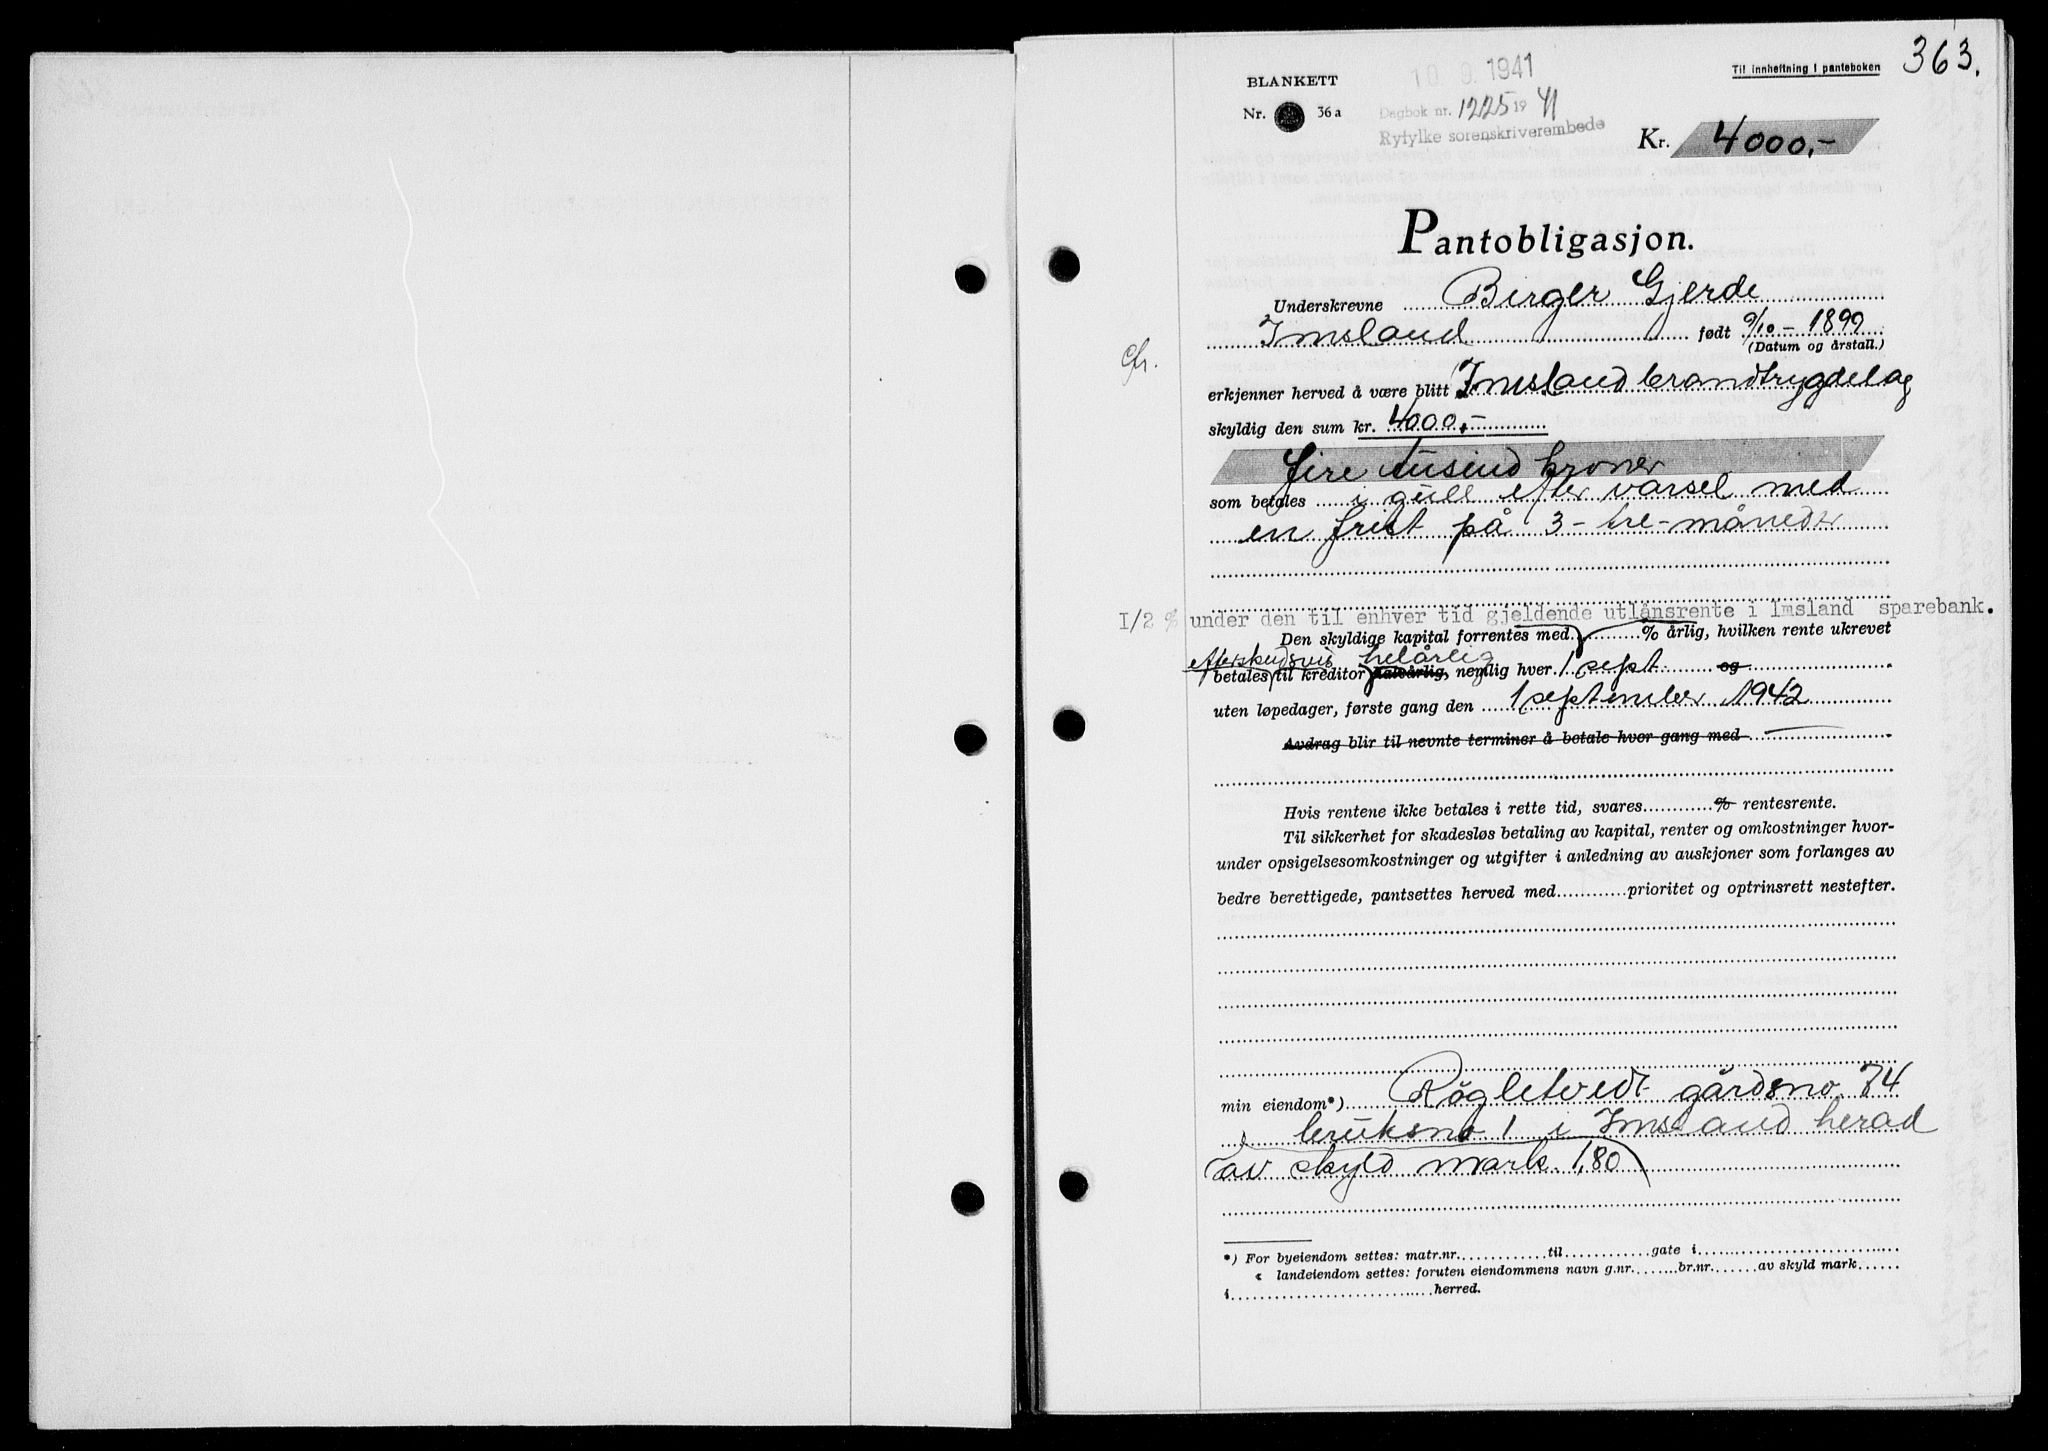 363.
Til innheftning i panteboken
10.9.1941
BLANKETT
Nr. 36 a
Dagbok nr. 1225 19 41
Ryfylke sorenskriverembede
Kr. 4000,-
Pantobligasjon.
Underskrevne Birger Gjerde
Imsland født 9/10 - 1899
(Datum og årstall.)
Cfr.
erkjenner herved å være blitt Imsland brandtrygdelag
skyldig den sum kr. 4000,-
fire tusind kroner
som betales i gull efter varsel med
en frist på 3 - tre - måneder
1/2 % under den til enhver tid gjeldende utlånsrente i Imsland sparebank.
Den skyldige kapital forrentes med % årlig, hvilken rente ukrevet
efterskudsvis helårlig
betales til kreditor halvårlig, nemlig hver 1 sept. og
uten løpedager, første gang den 1 september 1942
Avdrag blir til nevnte terminer å betale hver gang med
Hvis rentene ikke betales i rette tid, svares % rentesrente.
Til sikkerhet for skadesløs betaling av kapital, renter og omkostninger hvor-
under opsigelsesomkostninger og utgifter i anledning av auskjoner som forlanges av
bedre berettigede, pantsettes herved med prioritet og optrinsrett nestefter.
min eiendom*) Røgletvedt gårdsno. 74
bruksno 1 i Imsland herad
av skyld mark 1,80
*) For byeiendom settes: matr.nr. til gate i
« landeiendom settes: foruten eiendommens navn g.nr. br.nr. av skyld mark
i herred.